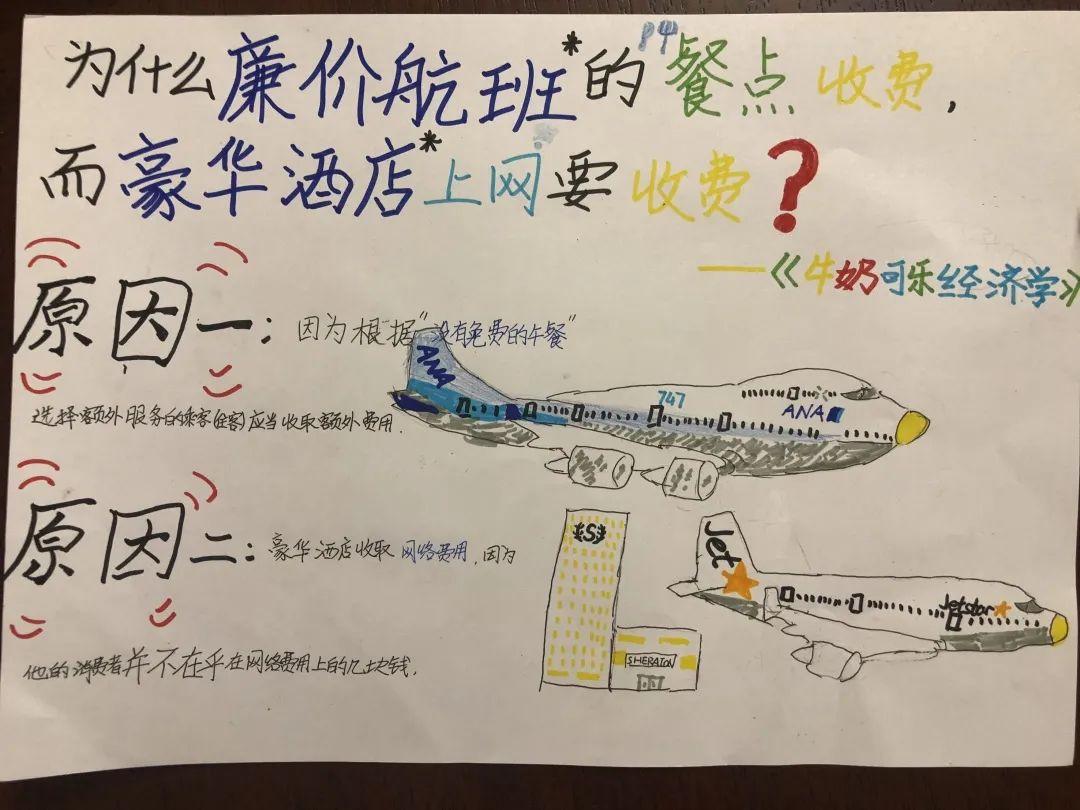 为什么廉价航班*的餐点收费,
而豪华酒店*上网要收费?
——《牛奶可乐经济学》
原因一:因为根据"没有免费的午餐"
选择额外服务的乘客(住客)应当收取额外费用.
ANA
747
ANA
原因二:豪华酒店收取网络费用,因为
他的消费者并不在乎在网络费用上的几块钱.
S
SHERATON
Jet
Jetstar